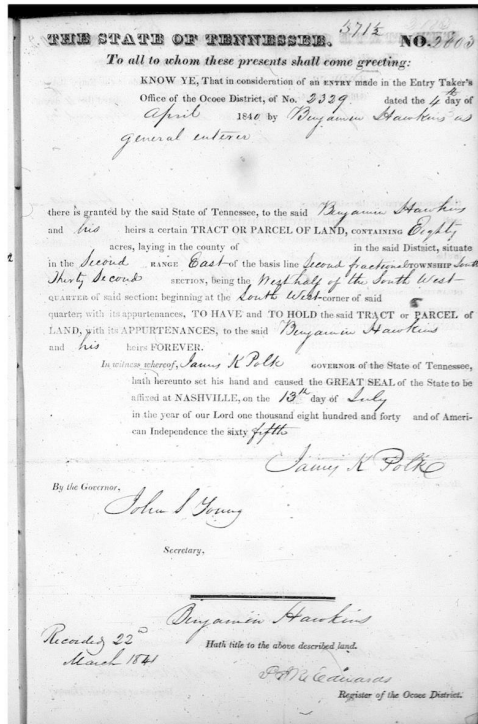 371½
THE STATE OF TENNESSEE. NO. 2603
To all to whom these presents shall come greeting:
KNOW YE, That in consideration of an ENTRY made in the Entry Taker's
Office of the Ocoee District, of No. 2329 dated the 4th day of
April 1840 by Benjamin Hawkins as
general enterer
there is granted by the said State of Tennessee, to the said Benjamin Hawkins
and his heirs a certain TRACT OR PARCEL OF LAND, CONTAINING Eighty
acres, laying in the county of in the said District, situate
in the Second RANGE East of the basis line Second fractional TOWNSHIP South
Thirty Second SECTION, being the West half of the South West
QUARTER of said section: beginning at the South West corner of said
quarter: with its appurtenances, TO HAVE and TO HOLD the said TRACT or PARCEL of
LAND, with its APPURTENANCES, to the said Benjamin Hawkins
and his heirs FOREVER.
In witness whereof, James K Polk GOVERNOR of the State of Tennessee,
hath hereunto set his hand and caused the GREAT SEAL of the State to be
affixed at NASHVILLE, on the 13th day of July
in the year of our Lord one thousand eight hundred and forty and of Ameri-
can Independence the sixty fifth
James K Polk
By the Governor,
John S Young
Secretary.
Benjamin Hawkins
Recorded 22d
Hath title to the above described land.
March 1841
Edwards
Register of the Ocoee District.